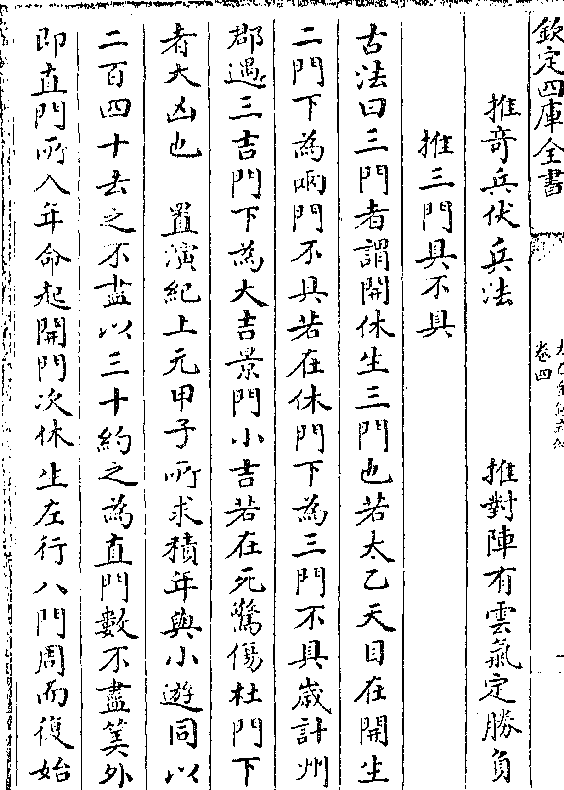 欽定四庫全書
卷四
推奇兵伏兵法　推對陣有雲氣定勝負
推三門具不具
古法曰三門者謂開休生三門也若太乙天目在開生
二門下為兩門不具若在休門下為三門不具歲計州
郡遇三吉門下為大吉景門小吉若在死驚傷杜門下
者大凶也　置演紀上元甲子所求積年與小遊同以
二百四十去之不盡以三十約之為直門數不盡筭外
即直門所入年命起開門次休生左行八門周而復始